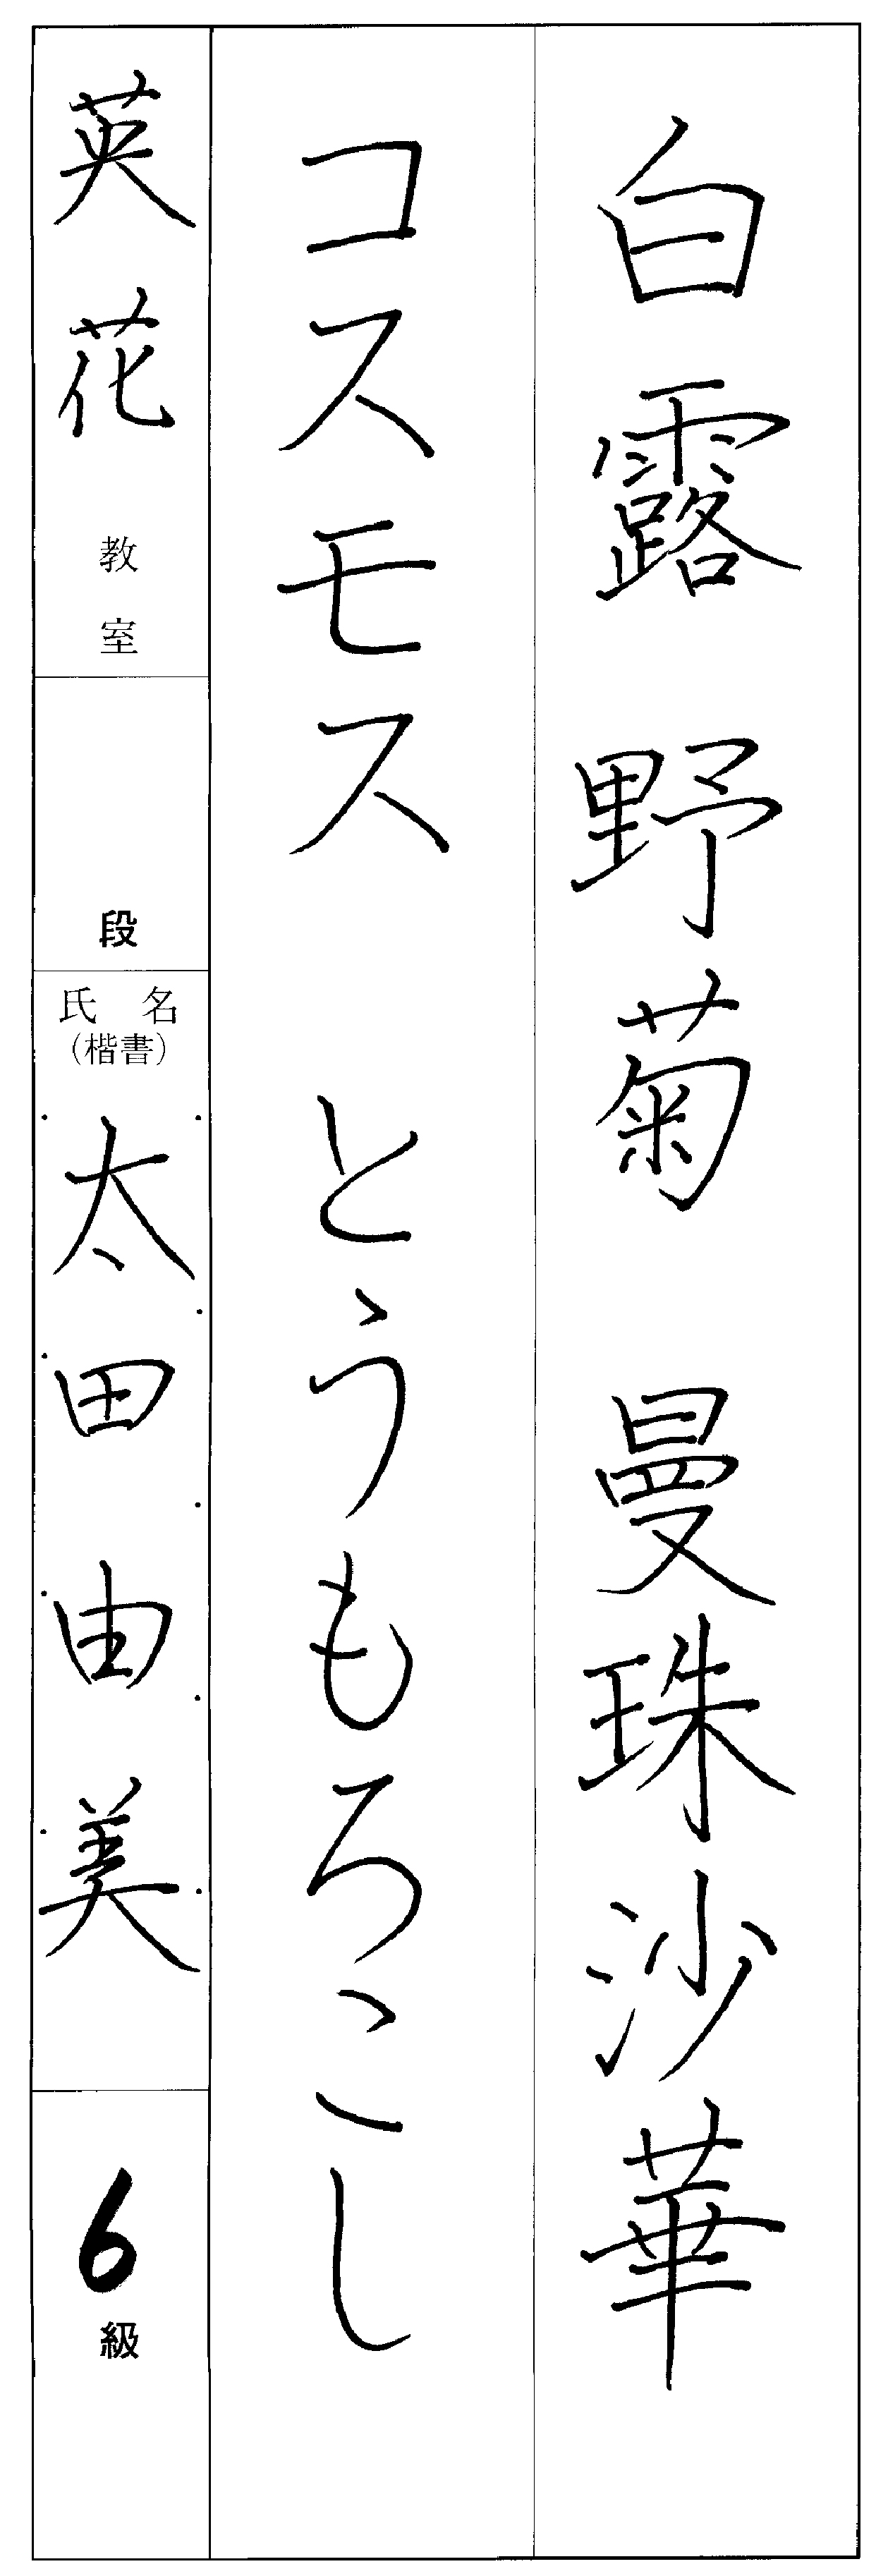 白露 野菊 曼珠沙華
コスモス とうもろこし
英花教室
段
氏名
(楷書)
太田由美
6級